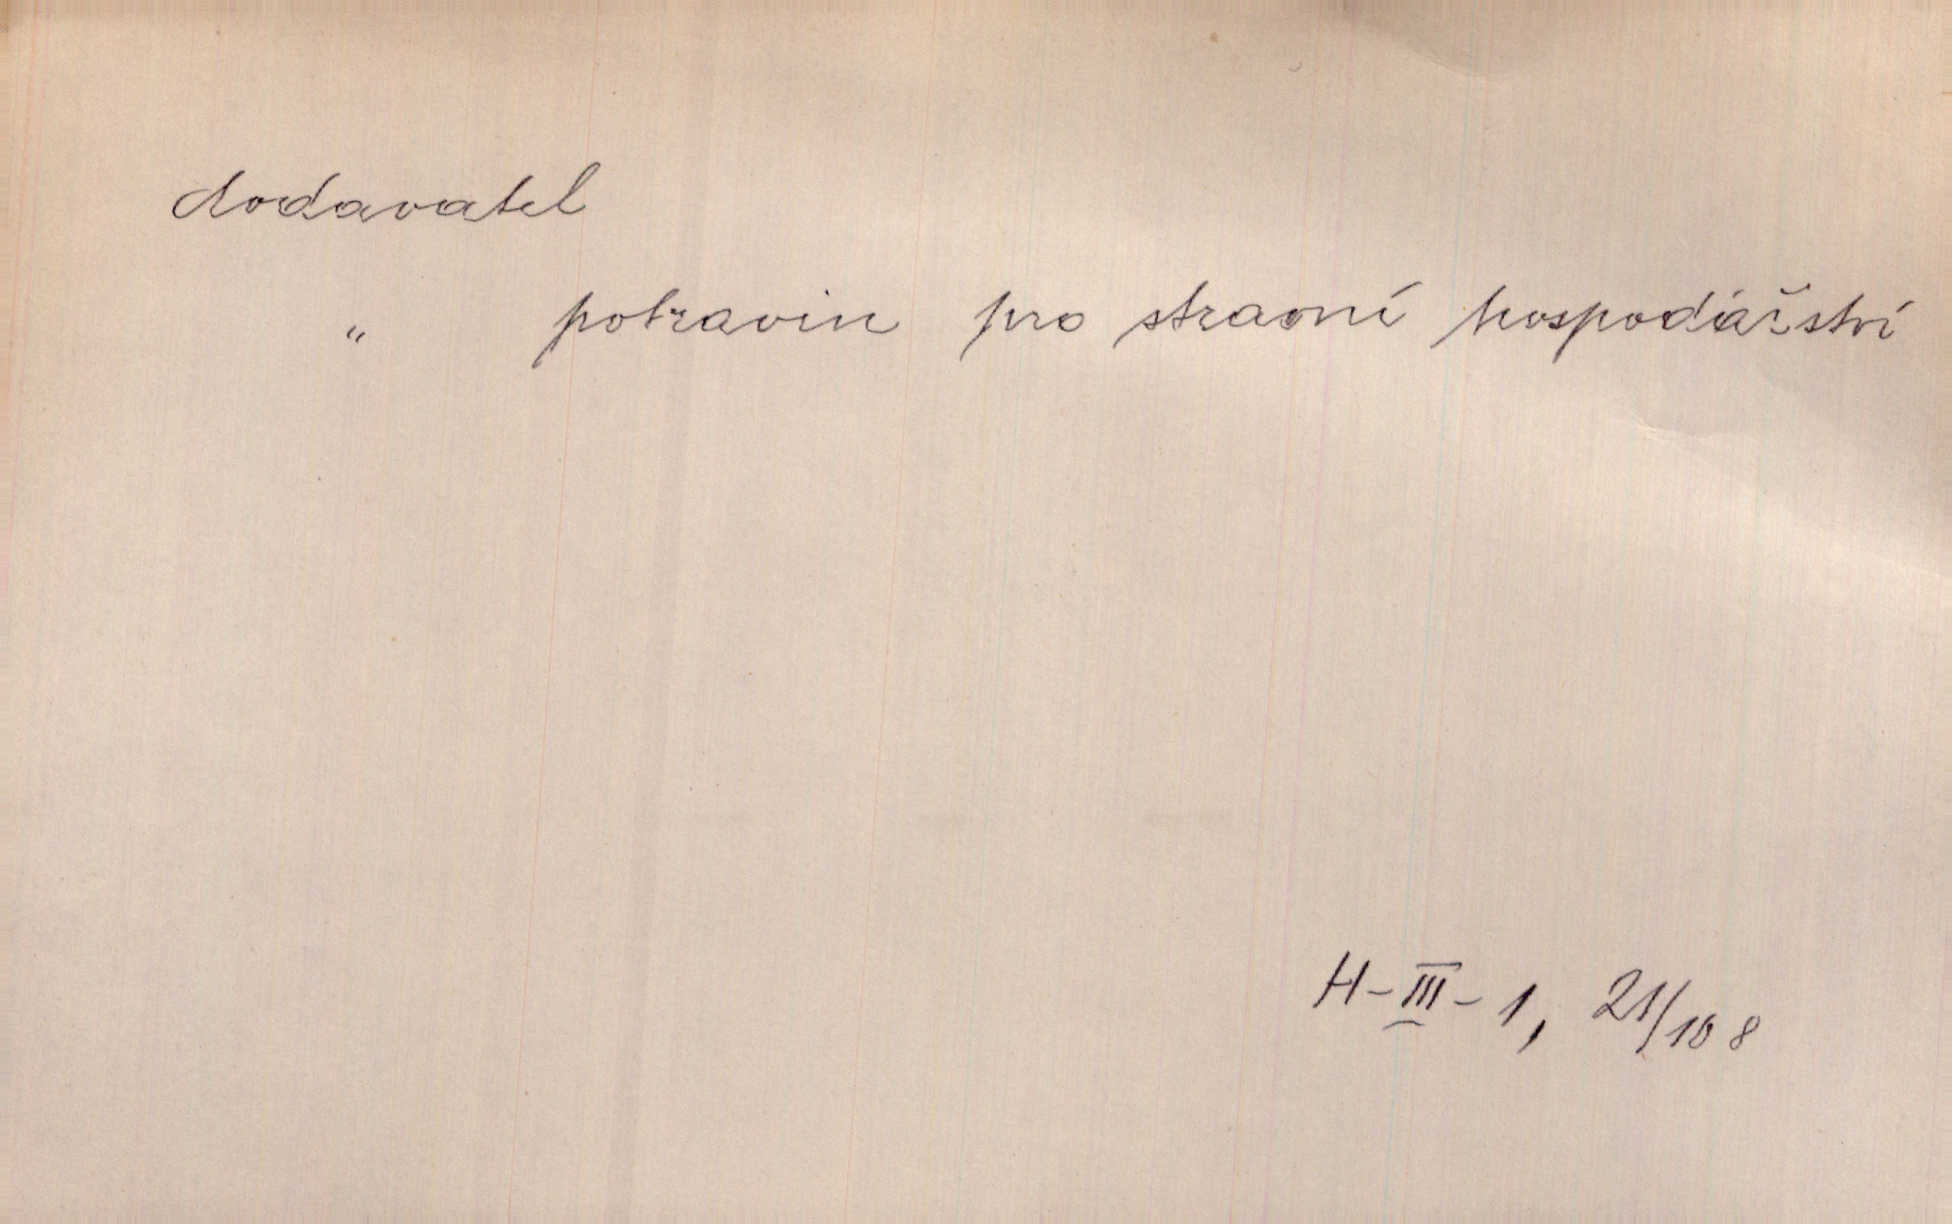 dodavatel
" potravin pro stravní hospodářství
H-III-1, 21/108